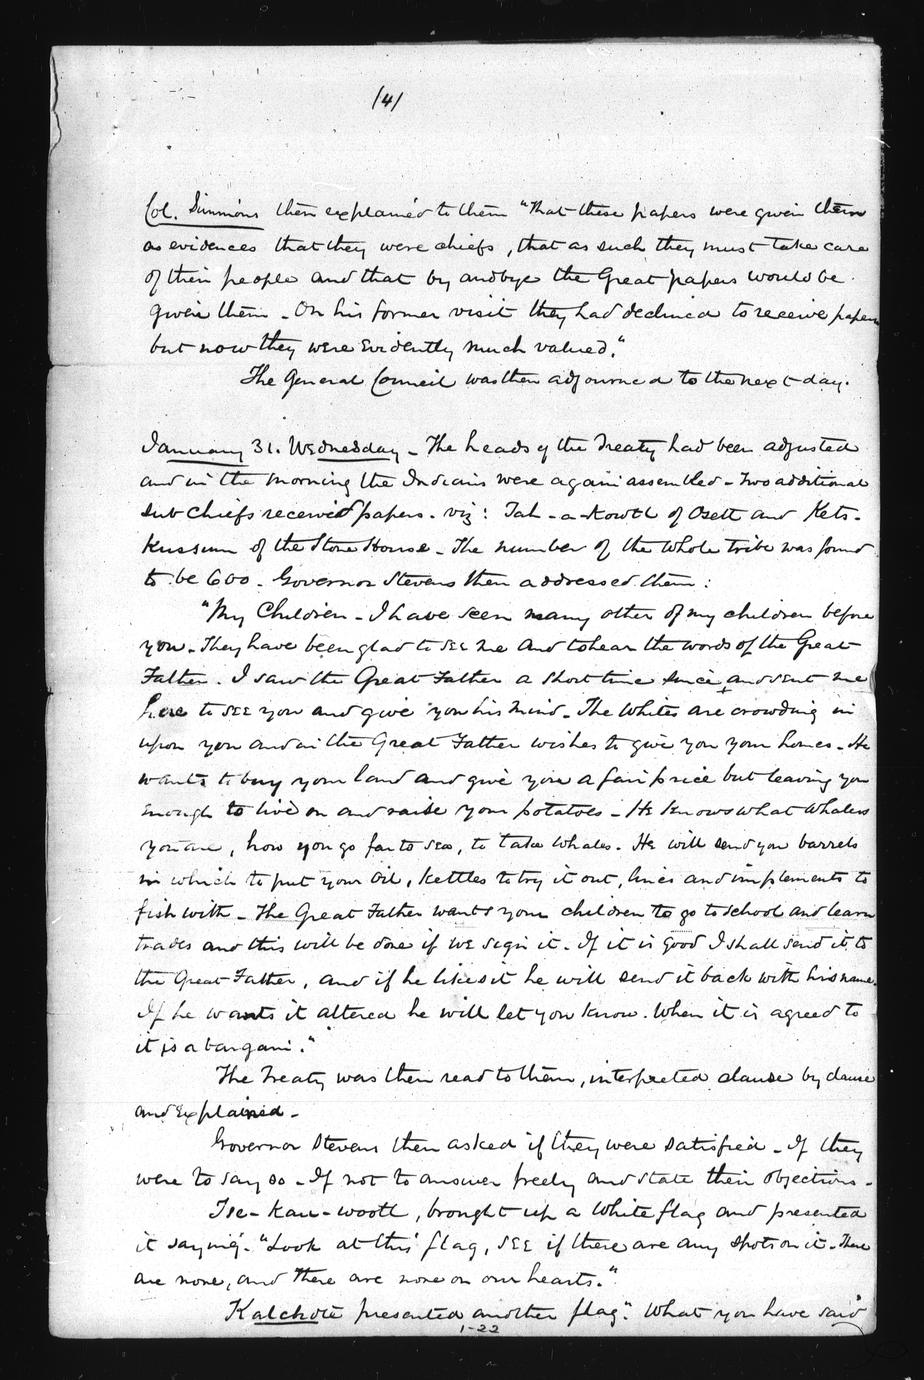 /4/
Col. Simmons then explained to them "That these papers were given them
as evidences that they were chiefs, that as such they must take care
of their people and that by andbye the Great papers would be
given them - On his former visit they had declined to receive papers
but now they were Evidently much valued."
The General Council was then adjourned to the next day.
January 31. Wednesday - The heads of the Treaty had been adjusted
and in the morning the Indians were again assembled - Two additional
sub Chiefs received papers. viz: Tah-a-kowtl of Osett and Kets-
kussum of the Stone House - The number of the whole tribe was found
to be 600 - Governor Stevens then addressed them:
"My Children - I have seen many other of my children before
you - They have been glad to see me and to hear the words of the Great
Father. I saw the Great Father a short time since, and sent me
here to see you and give you his mind - The Whites are crowding in
upon you and in the Great Father wishes to give you your homes - He
wants to buy your land and give you a fair price but leaving you
enough to live on and raise your potatoes - He knows what Whalers
you are, how you go far to sea, to take Whales. He will send you barrels
in which to put your Oil, kettles to try it out, lines and implements to
fish with - The Great Father wants your children to go to school and learn
trades and this will be done if we sign it - If it is good I shall send it to
the Great Father, and if he likes it he will send it back with his name.
If he wants it altered he will let you know. When it is agreed to
it is a bargain."
The Treaty was then read to them, interpreted clause by clause
and Explained -
Governor Stevens then asked if they were satisfied - If they
were to say so - If not to answer freely and state their objections -
Tse-kau-wootl, brought up a White flag and presented
it saying - "Look at this flag, see if there are any spots on it - There
are none, and there are none on our hearts."
Kalchote presented another flag "What you have said
1-22